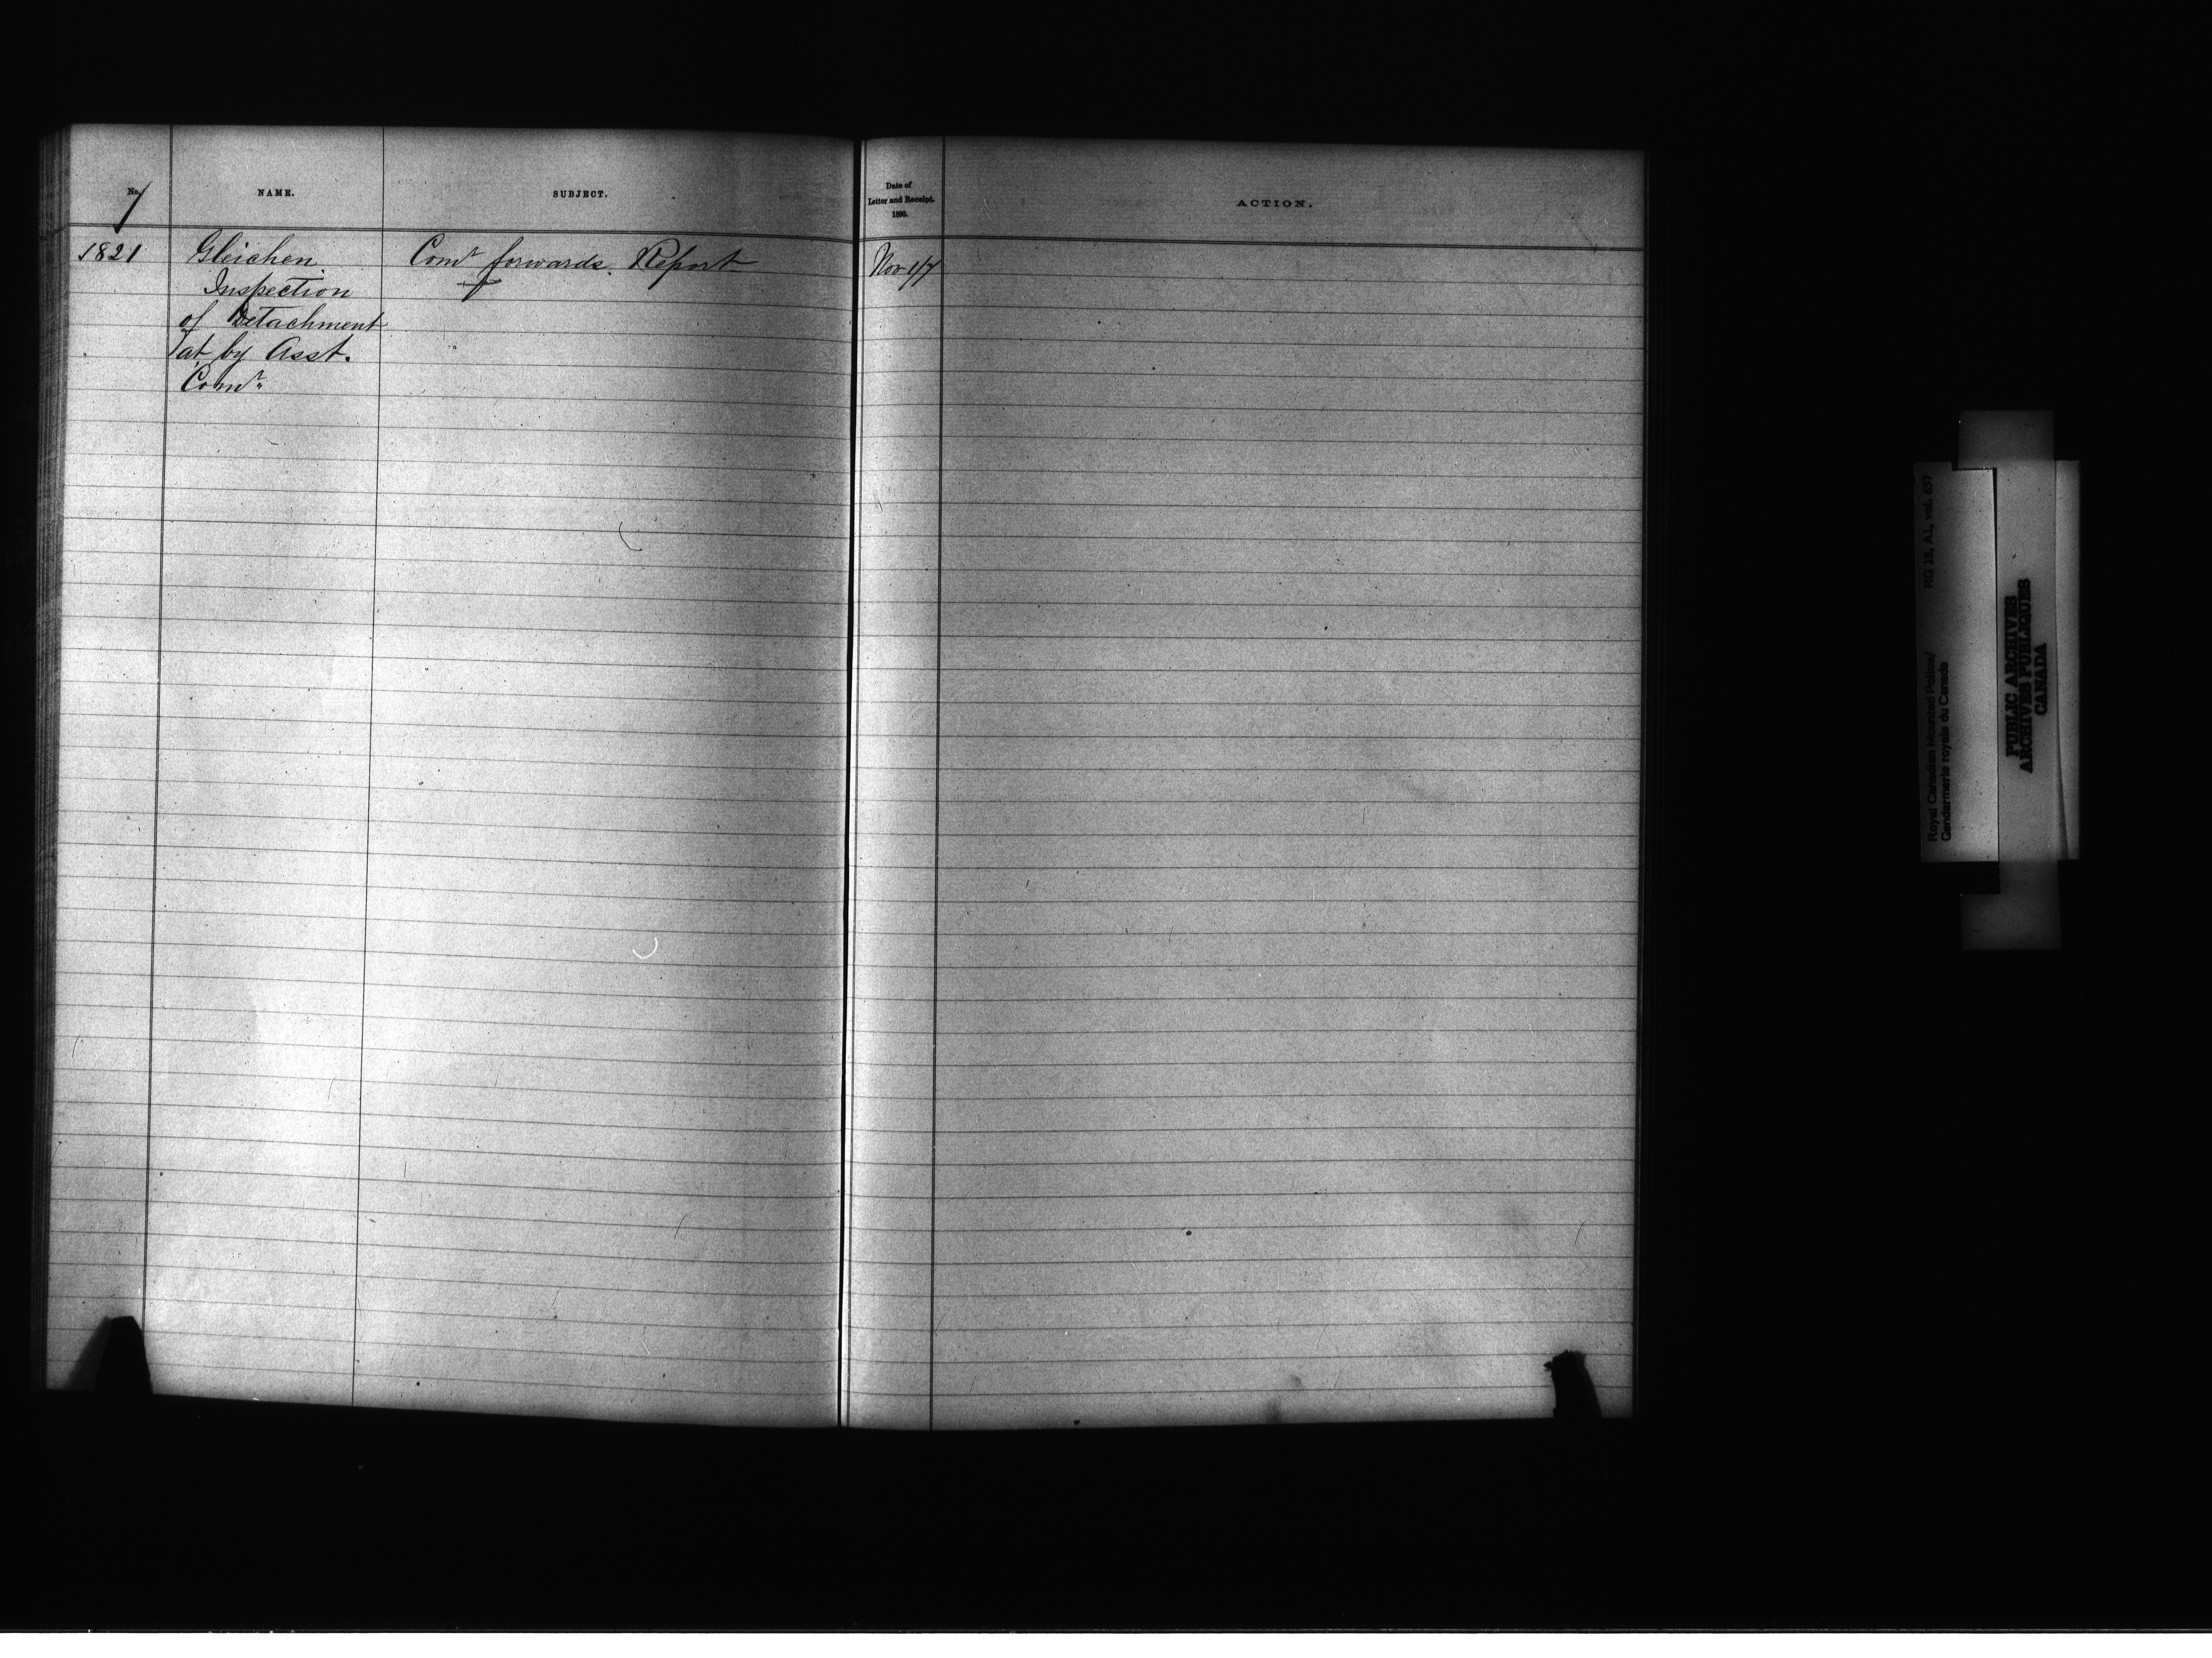 No. NAME. SUBJECT.
7
Date of
Letter and Receipt.
1890.
ACTION.
1821 Gleichen Comr forwards. Report Nov 1/7
Inspection
of Detachment
at by Asst.
Comr
Royal Canadian Mounted Police/ RG 18, A1, vol. 637
Gendarmerie royale du Canada
PUBLIC ARCHIVES
ARCHIVES PUBLIQUES
CANADA